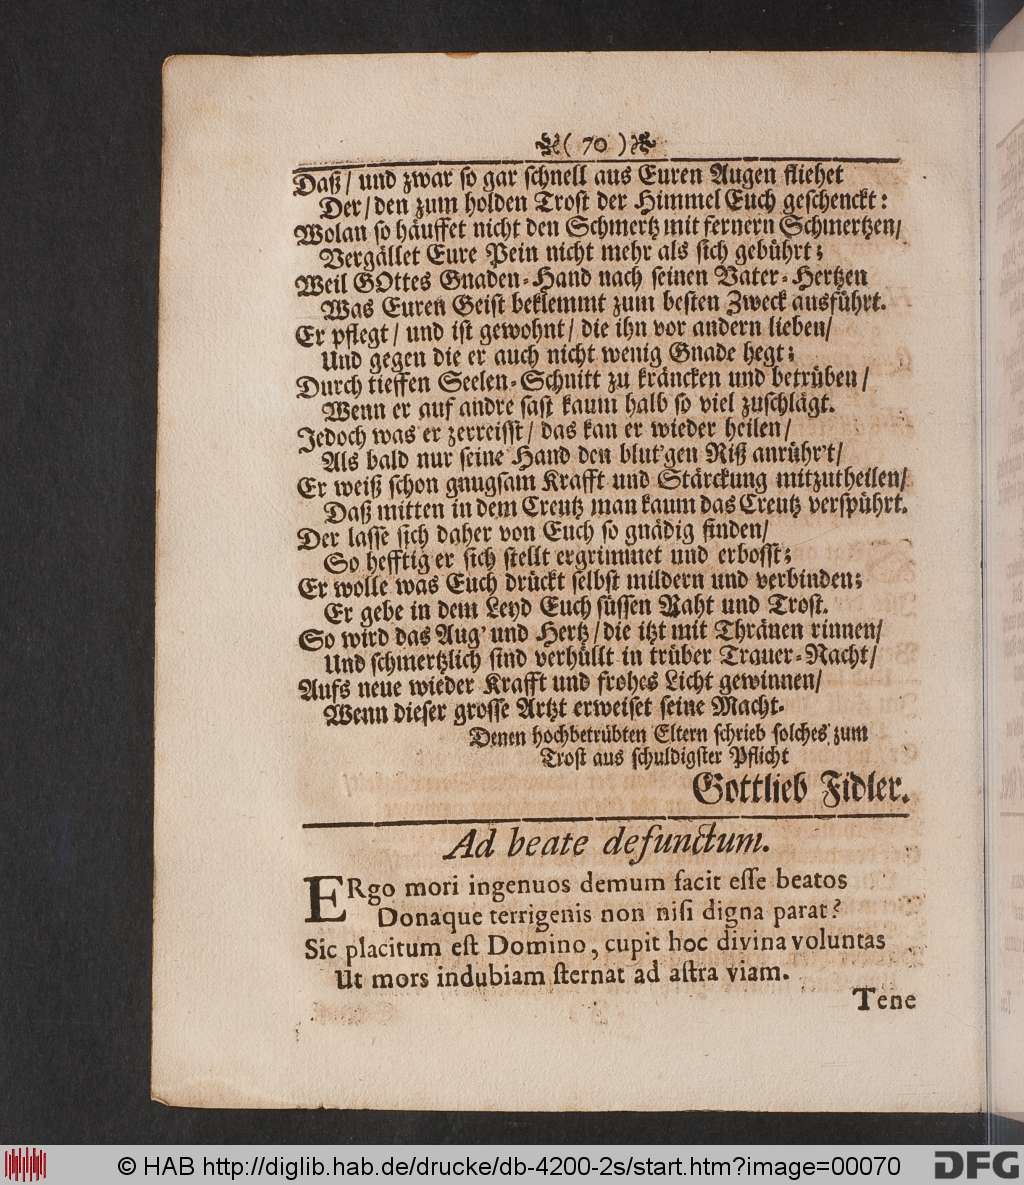 ( 70 )
Daß / und zwar so gar schnell aus Euren Augen fliehet
Der / den zum holden Trost der Himmel Euch geschenckt:
Wolan so häuffet nicht den Schmertz mit fernern Schmertzen /
Vergället Eure Pein nicht mehr als sich gebührt;
Weil GOttes Gnaden-Hand nach seinen Vater-Hertzen
Was Euren Geist beklemmt zum besten Zweck ausführt.
Er pflegt / und ist gewohnt / die ihn vor andern lieben /
Und gegen die er auch nicht wenig Gnade hegt;
Durch tieffen Seelen-Schnitt zu kräncken und betrüben /
Wenn er auf andre fast kaum halb so viel zuschlägt.
Jedoch was er zerreisst / das kan er wieder heilen /
Als bald nur seine Hand den blut'gen Riß anrühr't /
Er weiß schon gnugsam Krafft und Stärckung mitzutheilen /
Daß mitten in dem Creutz man kaum das Creutz verspührt.
Der lasse sich daher von Euch so gnädig finden /
So hefftig er sich stellt ergrimmet und erbosst;
Er wolle was Euch drückt selbst mildern und verbinden;
Er gebe in dem Leyd Euch süssen Raht und Trost.
So wird das Aug' und Hertz / die itzt mit Thränen rinnen /
Und schmertzlich sind verhüllt in trüber Trauer-Nacht /
Aufs neue wieder Krafft und frohes Licht gewinnen /
Wenn dieser grosse Artzt erweiset seine Macht.
Denen hochbetrübten Eltern schrieb solches zum
Trost aus schuldigster Pflicht
Gottlieb Fidler.
Ad beate defunctum.
ERgo mori ingenuos demum facit esse beatos
Donaque terrigenis non nisi digna parat?
Sic placitum est Domino, cupit hoc divina voluntas
Ut mors indubiam sternat ad astra viam.
Tene
© HAB http://diglib.hab.de/drucke/db-4200-2s/start.htm?image=00070
DFG